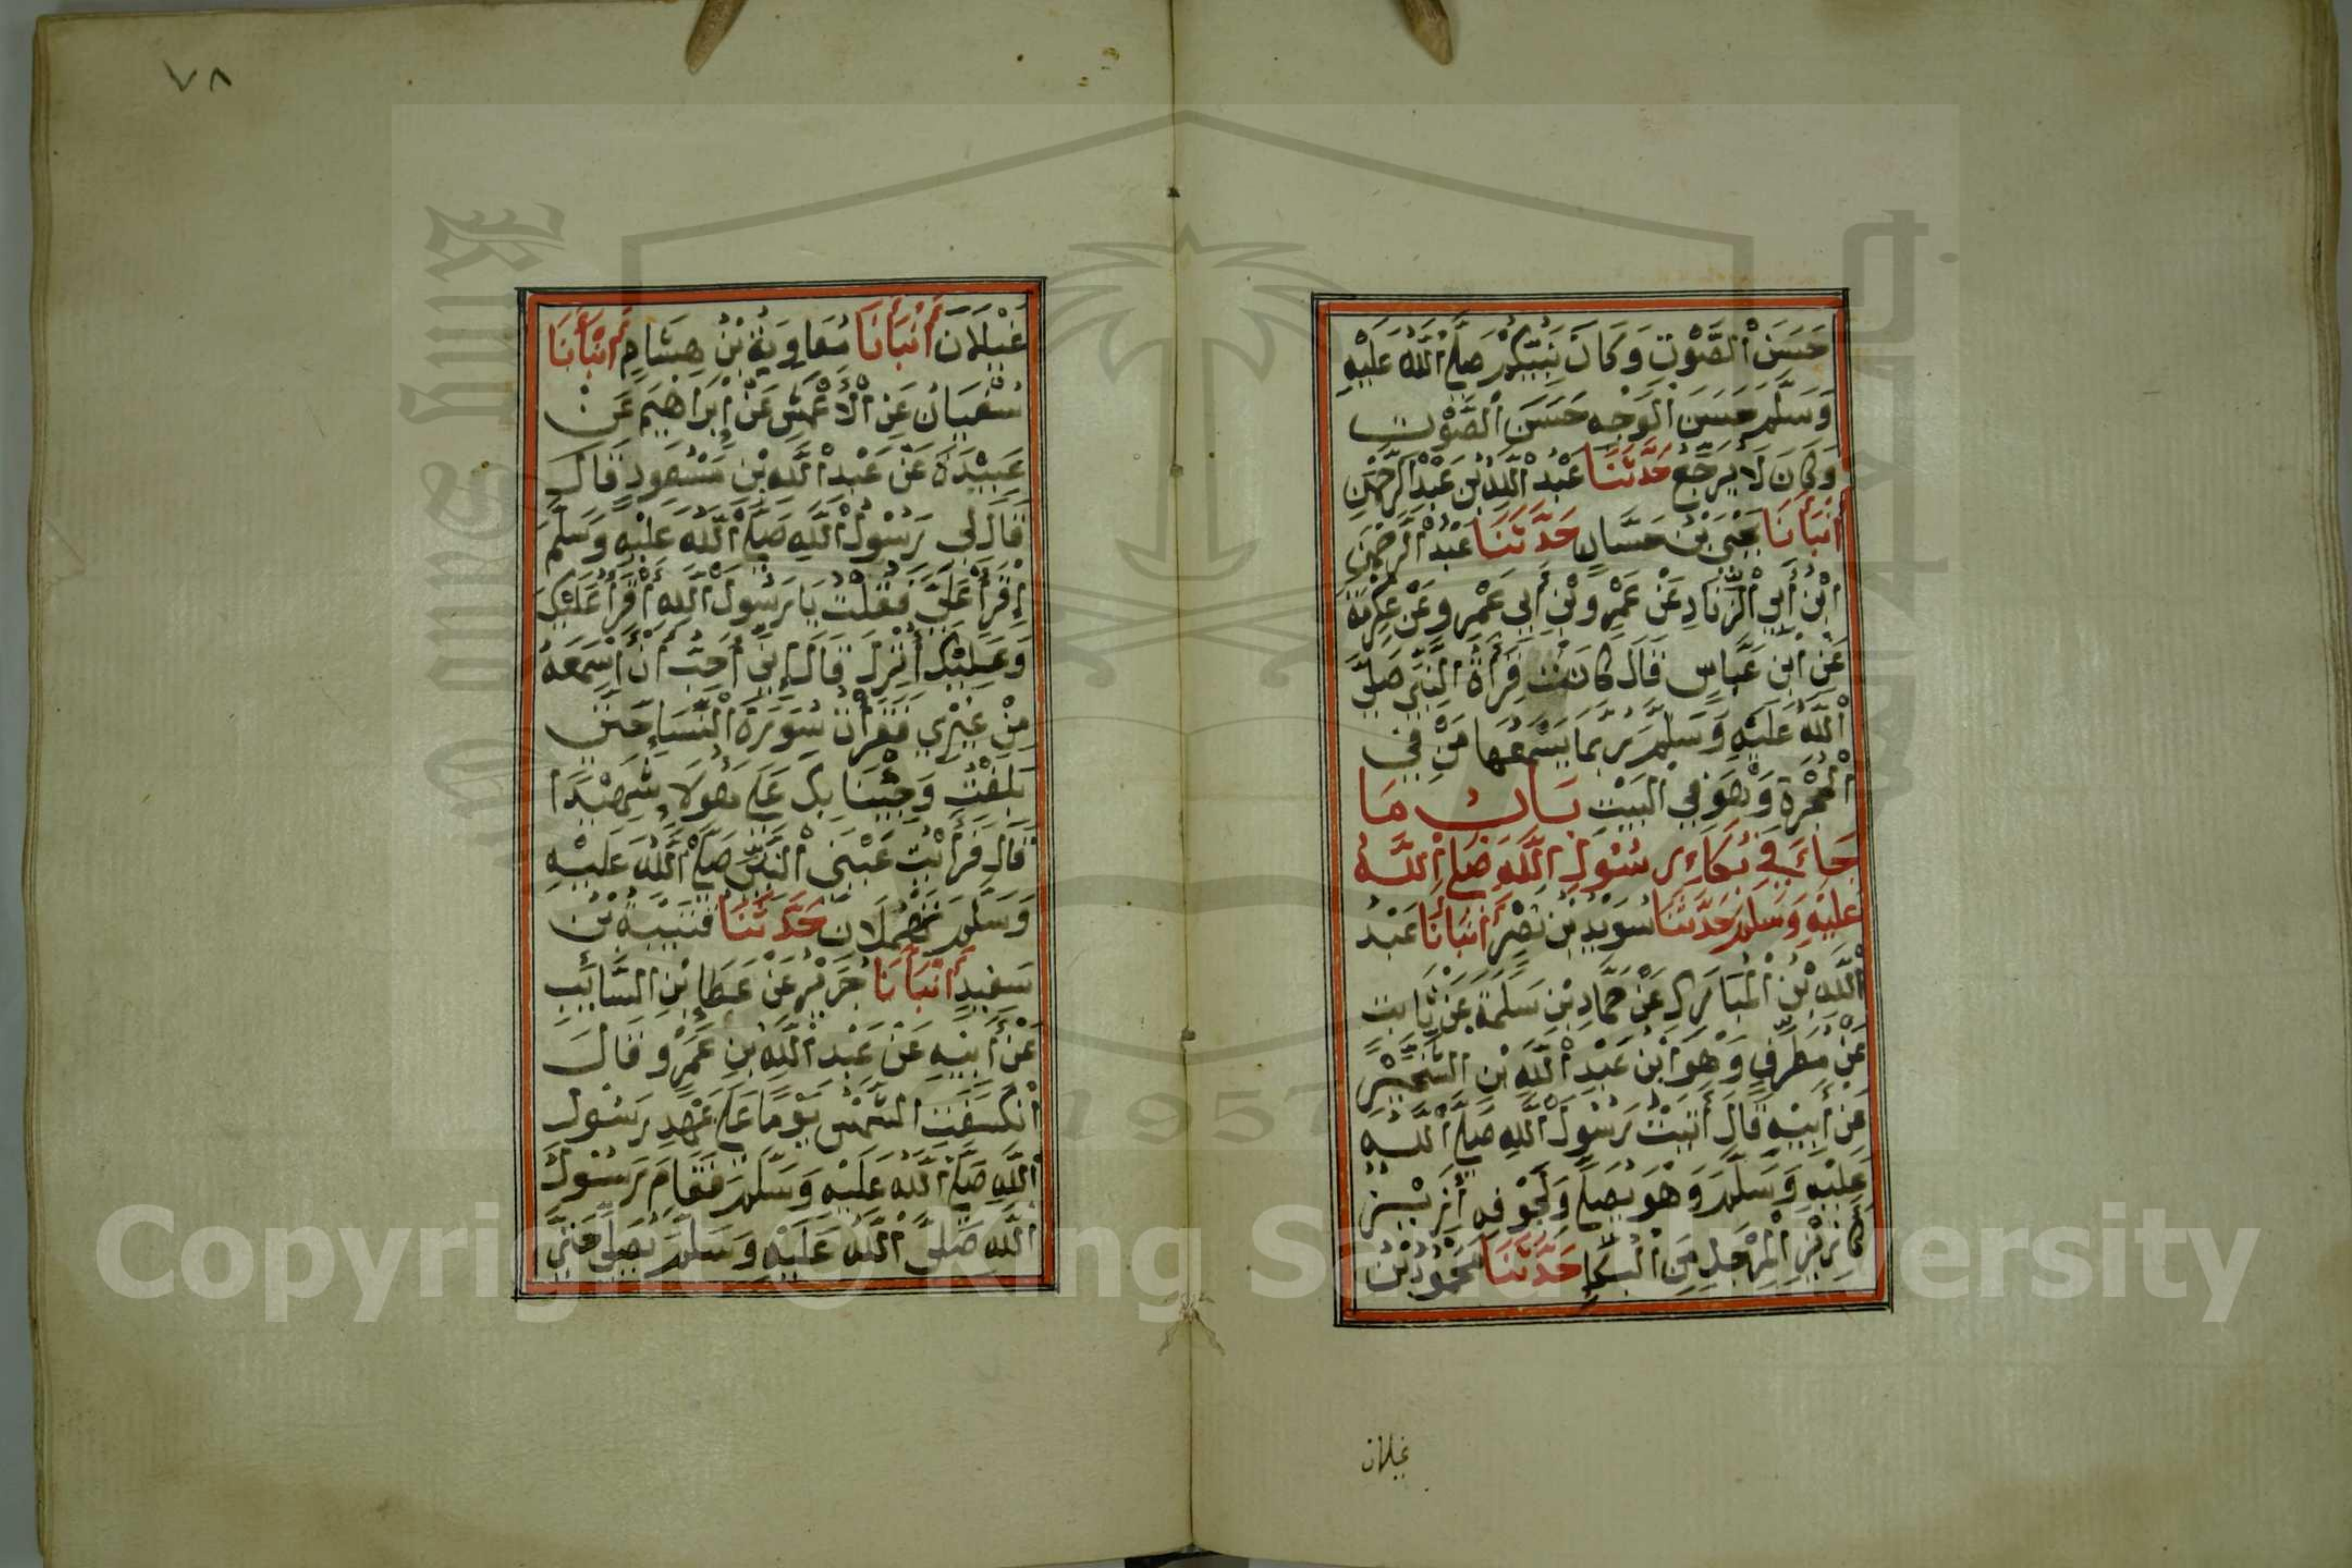 حَسَنَ الصَّوْتِ وَكَانَ نَبِيُّكُمْ صَلَّى اللَّهُ عَلَيْهِ
وَسَلَّمَ حَسَنَ الْوَجْهِ حَسَنَ الصَّوْتِ
وَكَانَ لَا يُرَجِّعُ حَدَّثَنَا عَبْدُ اللَّهِ بْنُ عَبْدِ الرَّحْمَنِ
أَنْبَأَنَا يَحْيَى بْنُ حَسَّانٍ حَدَّثَنَا عَبْدُ الرَّحْمَنِ
ابْنُ أَبِي الزِّنَادِ عَنْ عَمْرِو بْنِ أَبِي عَمْرٍو عَنْ عِكْرِمَةَ
عَنْ ابْنِ عَبَّاسٍ قَالَ كَانَتْ قِرَأَةُ النَّبِيِّ صَلَّى
اللَّهُ عَلَيْهِ وَسَلَّمَ رُبَّمَا يَسْمَعُهَا مَنْ فِي
الْحُجْرَةِ وَهُوَ فِي الْبَيْتِ بَابُ مَا
جَاءَ فِي بُكَاءِ رَسُولِ اللَّهِ صَلَّى اللَّهُ
عَلَيْهِ وَسَلَّمَ حَدَّثَنَا سُوَيْدُ بْنُ نَصْرٍ أَنْبَأَنَا عَبْدُ
اللَّهِ بْنُ الْمُبَارَكِ عَنْ حَمَّادِ بْنِ سَلَمَةَ عَنْ ثَابِتٍ
عَنْ مُطَرِّفٍ وَهُوَ ابْنُ عَبْدِ اللَّهِ بْنِ الشِّخِّيْرِ
عَنْ أَبِيْهِ قَالَ أَتَيْتُ رَسُولَ اللَّهِ صَلَّى اللَّهُ
عَلَيْهِ وَسَلَّمَ وَهُوَ يُصَلِّي وَلِجَوْفِهِ أَزِيْزٌ
كَأَزِيْزِ الْمِرْجَلِ مِنَ الْبُكَاءِ حَدَّثَنَا مَحْمُودُ بْنُ
غيلان
٧٨
غَيْلَانَ أَنْبَأَنَا مُعَاوِيَةُ بْنُ هِشَامٍ أَنْبَأَنَا
سُفْيَانُ عَنِ الْأَعْمَشِ عَنْ إِبْرَاهِيمَ عَنْ
عَبِيْدَةَ عَنْ عَبْدِ اللَّهِ بْنِ مَسْعُودٍ قَالَ
قَالَ لِي رَسُولُ اللَّهِ صَلَّى اللَّهُ عَلَيْهِ وَسَلَّمَ
إِقْرَأْ عَلَيَّ فَقُلْتُ يَا رَسُولَ اللَّهِ أَقْرَأُ عَلَيْكَ
وَعَلَيْكَ أُنْزِلَ قَالَ إِنِّي أُحِبُّ أَنْ أَسْمَعَهُ
مِنْ غَيْرِي فَقَرَأْتُ سُورَةَ النِّسَاءِ حَتَّى
بَلَغْتُ وَجِئْنَا بِكَ عَلَى هَؤُلَاءِ شَهِيْدًا
قَالَ فَرَأَيْتُ عَيْنَيِ النَّبِيِّ صَلَّى اللَّهُ عَلَيْهِ
وَسَلَّمَ تَهْمِلَانِ حَدَّثَنَا قُتَيْبَةُ بْنُ
سَعِيدٍ أَنْبَأَنَا جَرِيْرٌ عَنْ عَطَاءِ بْنِ السَّائِبِ
عَنْ أَبِيْهِ عَنْ عَبْدِ اللَّهِ بْنِ عَمْرٍو قَالَ
انْكَسَفَتِ الشَّمْسُ يَوْمًا عَلَى عَهْدِ رَسُولِ
اللَّهِ صَلَّى اللَّهُ عَلَيْهِ وَسَلَّمَ فَقَامَ رَسُولُ
اللَّهِ صَلَّى اللَّهُ عَلَيْهِ وَسَلَّمَ يُصَلِّي حَتَّى
1957
Copyright © King Saud University